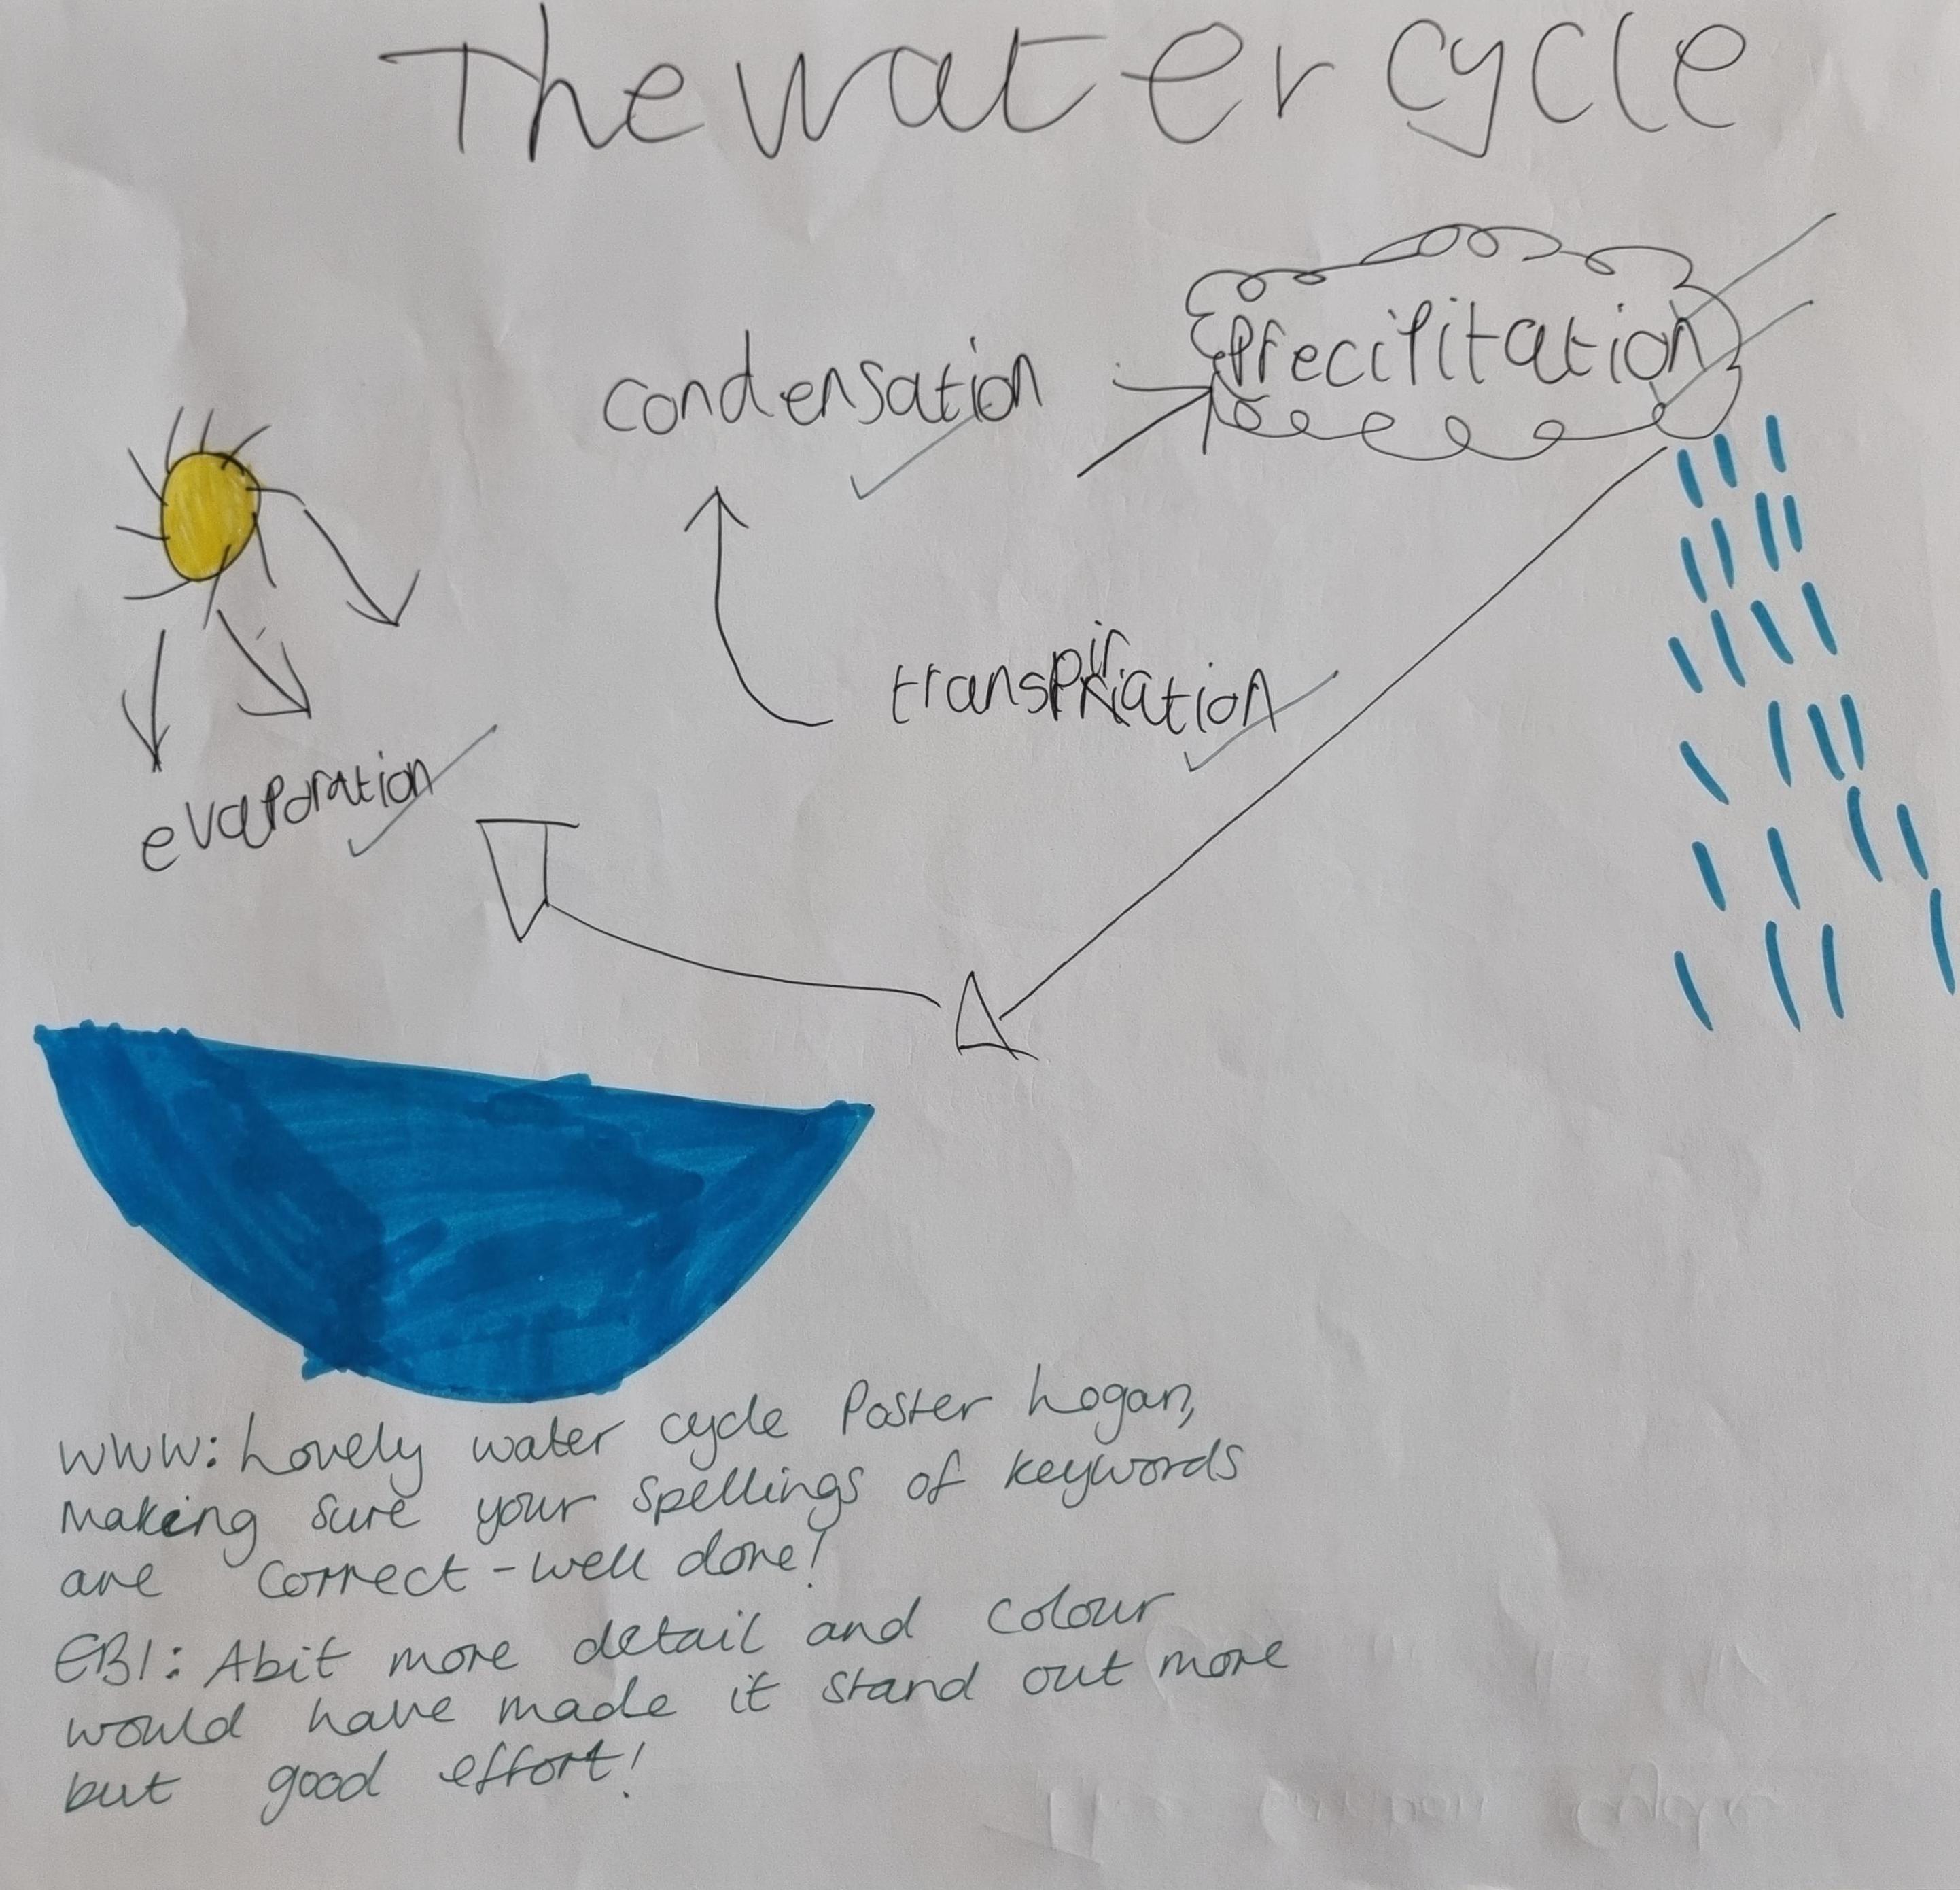 The water cycle
Precipitation
condensation
transpiration
evaporation
WWW: Lovely water cycle Poster Logan,
Making sure your spellings of keywords
are correct - well done!
EBI: Abit more detail and colour
would have made it stand out more
but good effort!